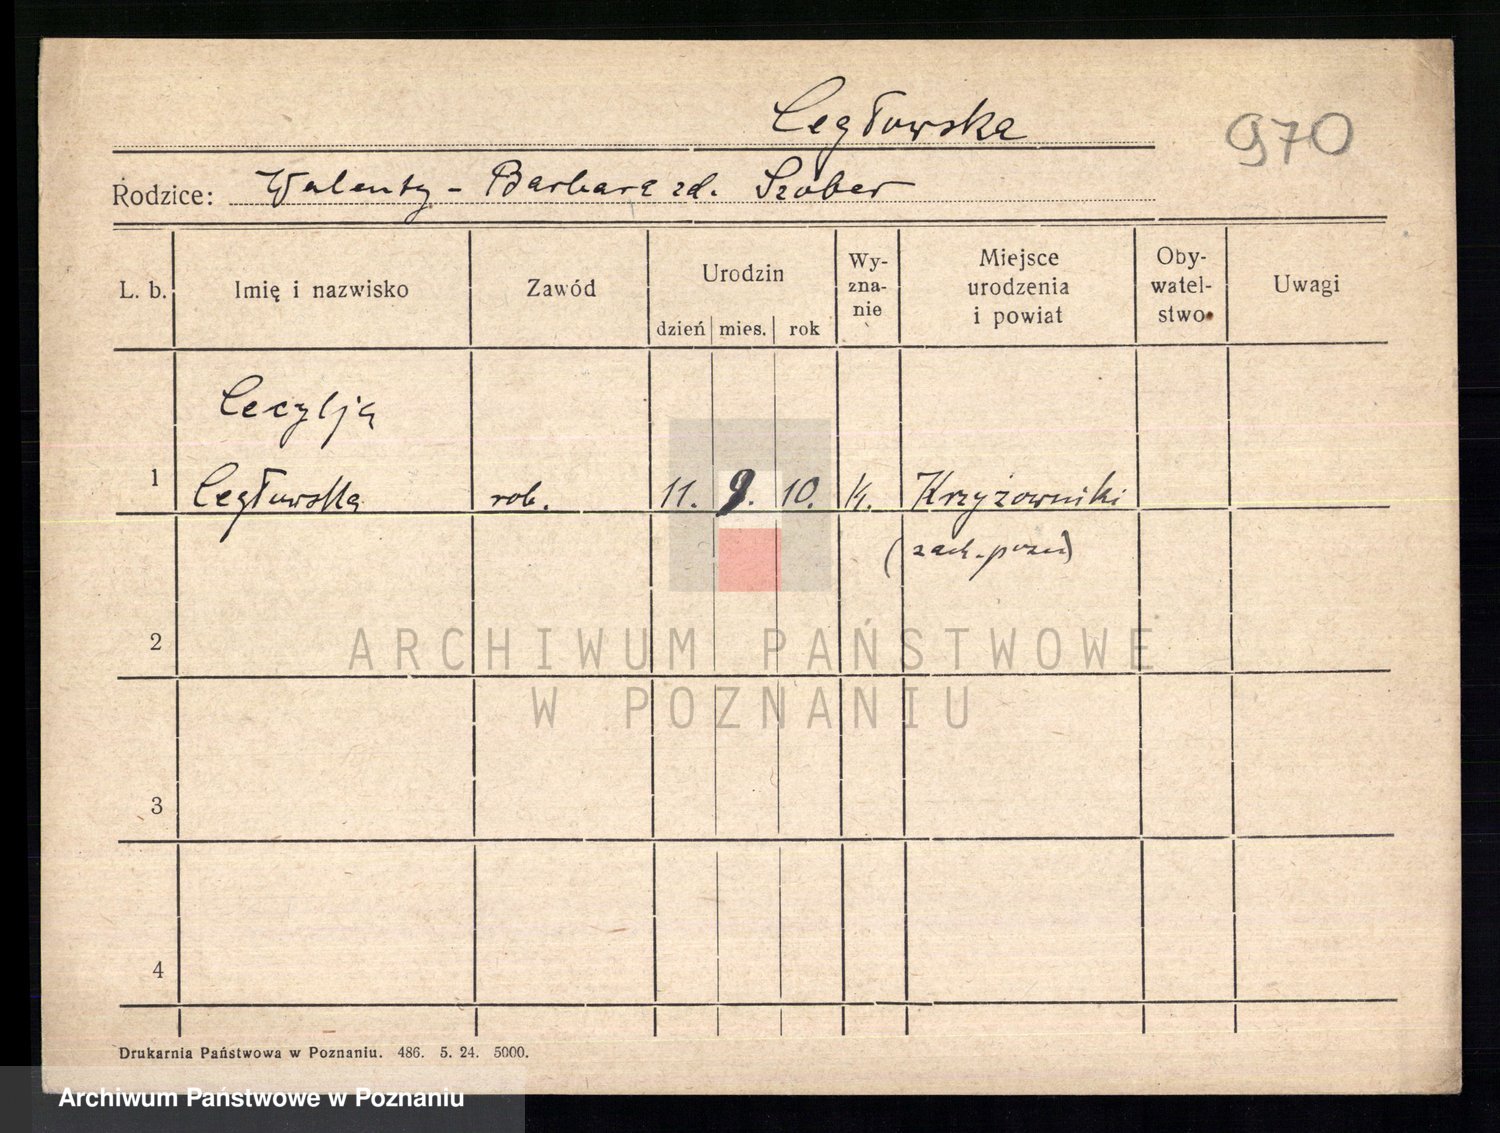 Cegłowska
970
Rodzice: Walenty - Barbara zd. Szober
L. b.
Imię i nazwisko
Zawód
Urodzin
dzień mies. rok
Wy-
zna-
nie
Miejsce
urodzenia
i powiat
Oby-
watel-
stwo
Uwagi
Cecylja
1 Cegłowska rob. 11. 9. 10. Krzyżowniki
(zach.-pozn)
2
3
4
ARCHIWUM PAŃSTWOWE
W POZNANIU
Drukarnia Państwowa w Poznaniu. 486. 5. 24. 5000.
Archiwum Państwowe w Poznaniu